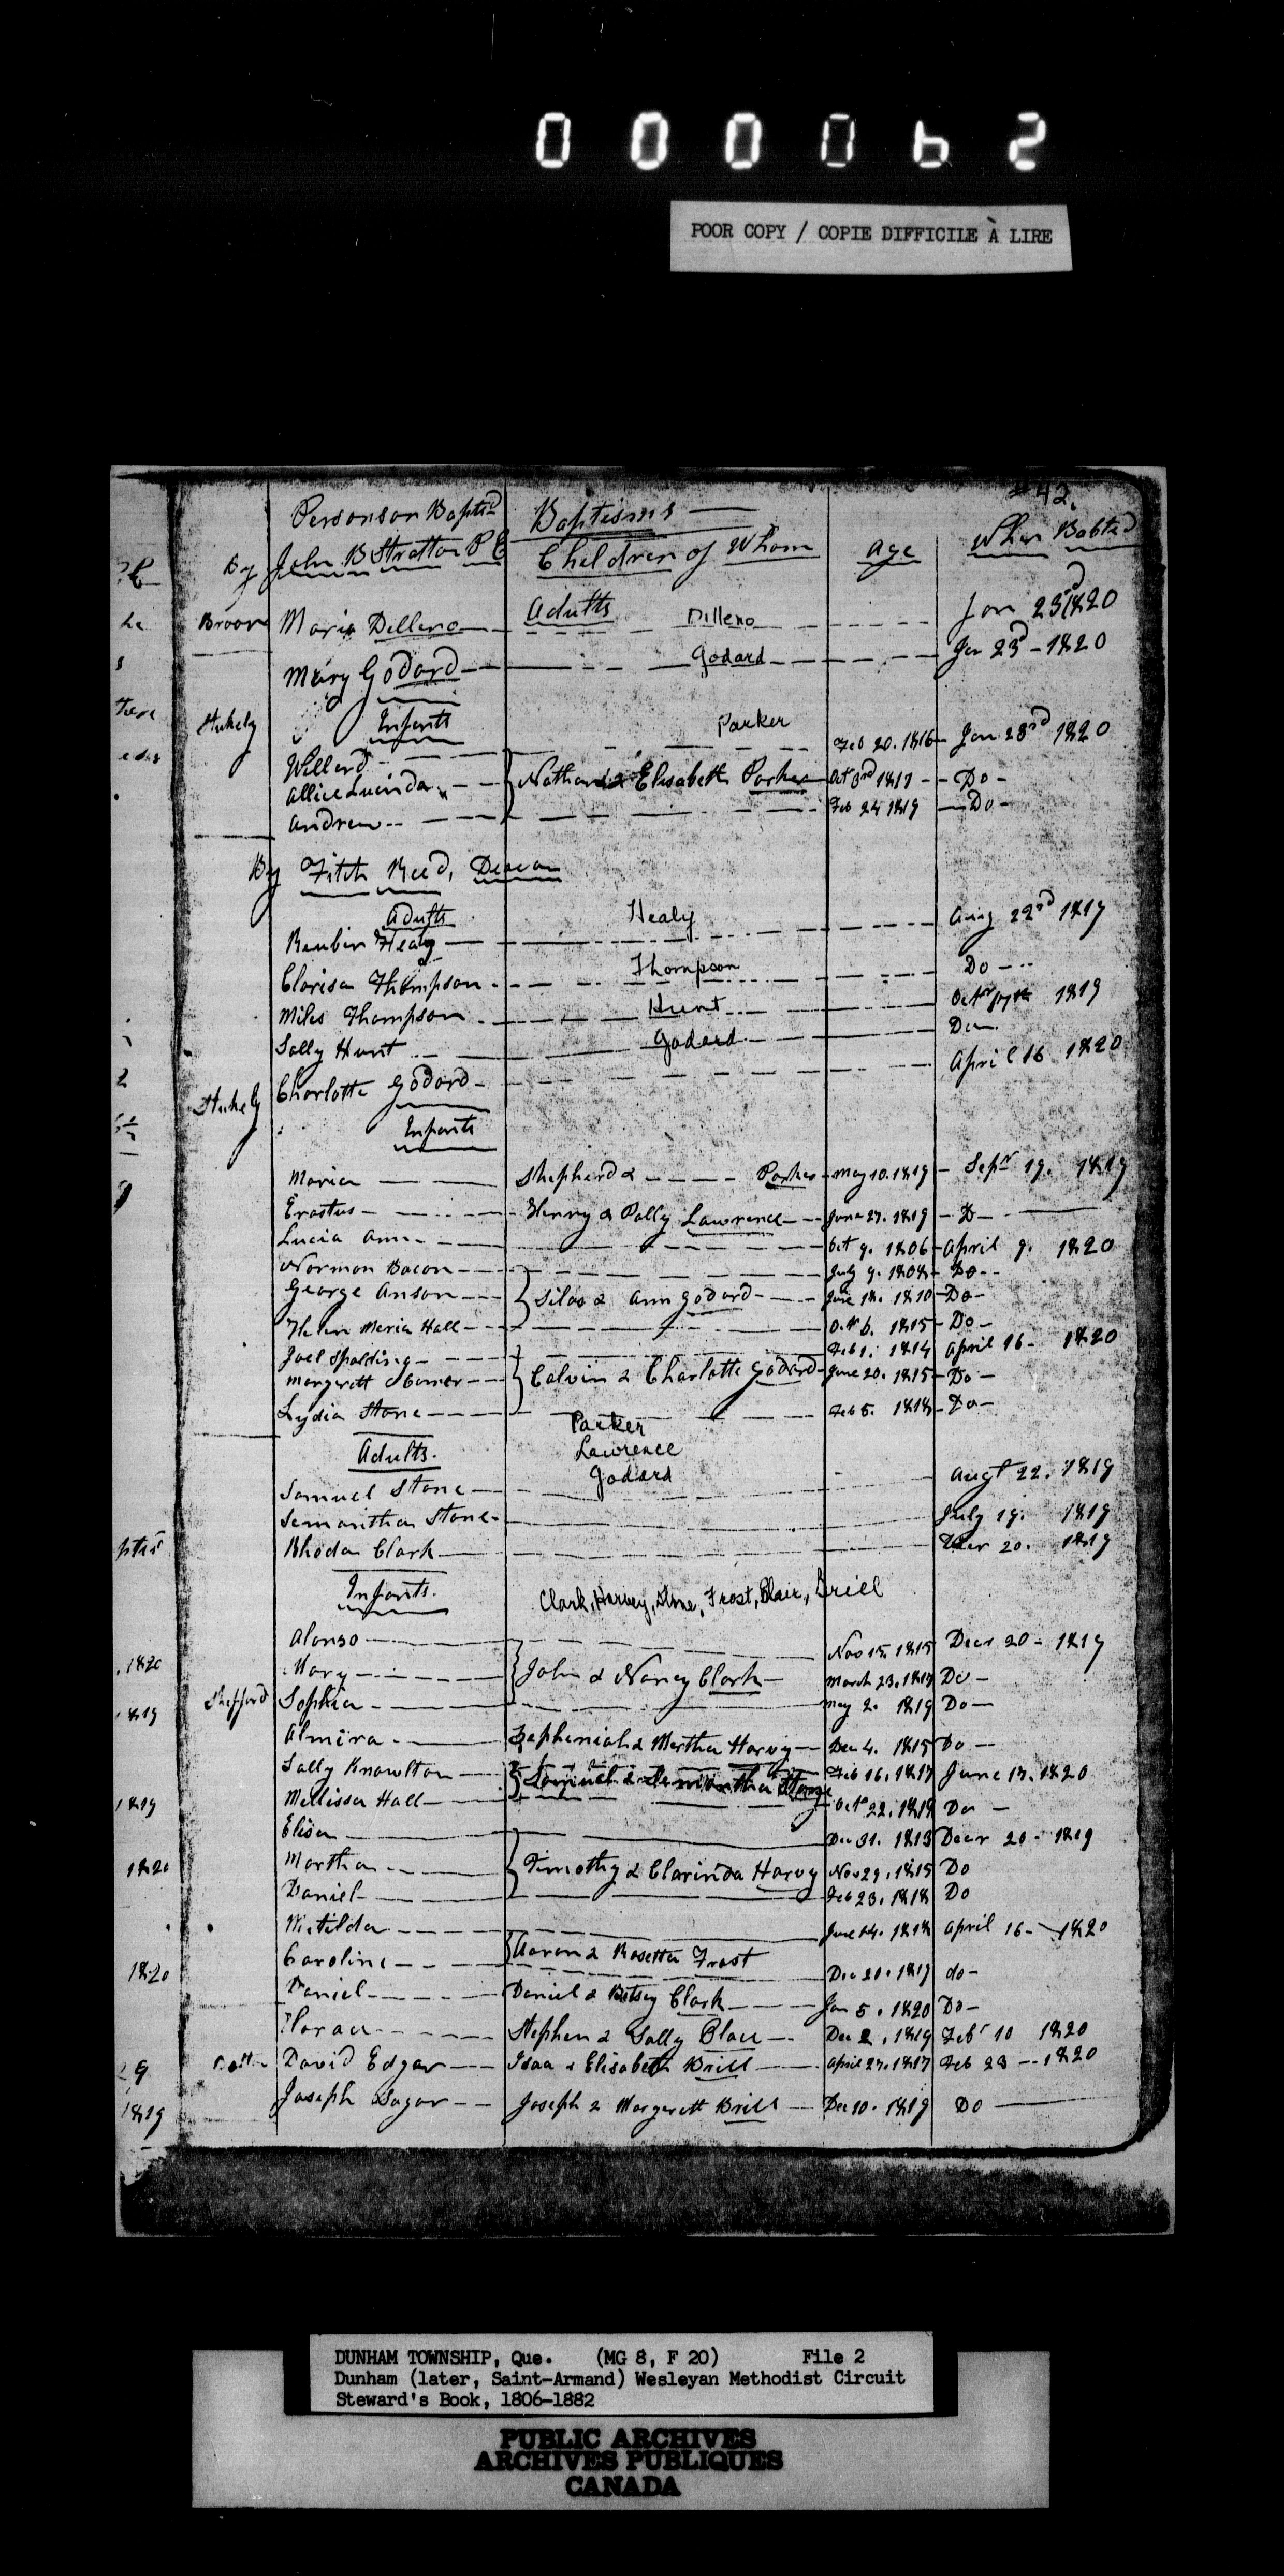 000062
POOR COPY / COPIE DIFFICILE À LIRE
#42
Persons Baptd Baptisms
By John B Stratton P E Children of Whom age When Babtd
Adults
Broom Maria Dilleno Dilleno Jan 23d 1820
Mary Godard Godard Jan 23d - 1820
Stukely Infants Parker
Willard Feb 20. 1816 Jan 28rd 1820
Allice Lucinda Nathan & Elisabeth Parker Oct 3rd 1817 Do
Andrew Feb 24 1819 Do
By Fitch Reed, Deacon
Adults
Reubin Healy Healy Aug 22nd 1819
Clarisa Thompson Thompson Do
Miles Thompson Hunt Octr 17th 1819
Sally Hunt Godard Do
Stukely Charlotte Godard April 16 1820
Infants
Maria Shepherd & Parker May 10. 1819 Sepr 19. 1819
Erastus Henry & Polly Lawrence June 27. 1819 D
Lucia Ann Oct 9. 1806 April 9. 1820
Norman Bacon July 9. 1808 Do
George Anson Silas & Ann Godard June 18. 1810 Do
Helen Maria Hall Octr 6. 1815 Do
Joel Spalding Feb 1. 1814 April 16 - 1820
Margerett Calvin & Charlotte Godard June 20. 1815 Do
Lydia Stone Feb 5. 1818 Do
Parker
Adults. Lawrence
Godard
Samuel Stone Augt 22. 1819
Semantha Stone July 19. 1819
Rhoda Clark Decr 20. 1819
Infants. Clark, Harvey, Stone, Frost, Blair, Brill
Alonso Nov 15. 1815 Decr 20 - 1819
Mary John & Nancy Clark March 23. 1817 Do
Shefford Sophia May 2. 1819 Do
Almira Zepheniah & Martha Harvy Dec 4. 1815 Do
Sally Knowlton Samuel & Semantha Stone Feb 16. 1817 June 13. 1820
Mellissa Hall Octr 22. 1818 Do
Elisa Dec 31. 1813 Decr 20 - 1819
Martha Timothy & Clarinda Harvy Nov 29. 1815 Do
Daniel Feb 23. 1818 Do
Matilda June 14. 1818 April 16 - 1820
Caroline Aaron & Rosetta Frost Dec 20. 1819 do
Daniel Daniel & Betsey Clark Jan 5. 1820 Do
Horace Stephen & Sally Blair Dec 2. 1819 Febr 10 1820
David Edgar Isaa & Elisabeth Brill April 27. 1817 Feb 23 - 1820
Joseph Sagar Joseph & Margerett Brill Dec 10. 1819 Do
DUNHAM TOWNSHIP, Que. (MG 8, F 20) File 2
Dunham (later, Saint-Armand) Wesleyan Methodist Circuit
Steward's Book, 1806-1882
PUBLIC ARCHIVES
ARCHIVES PUBLIQUES
CANADA